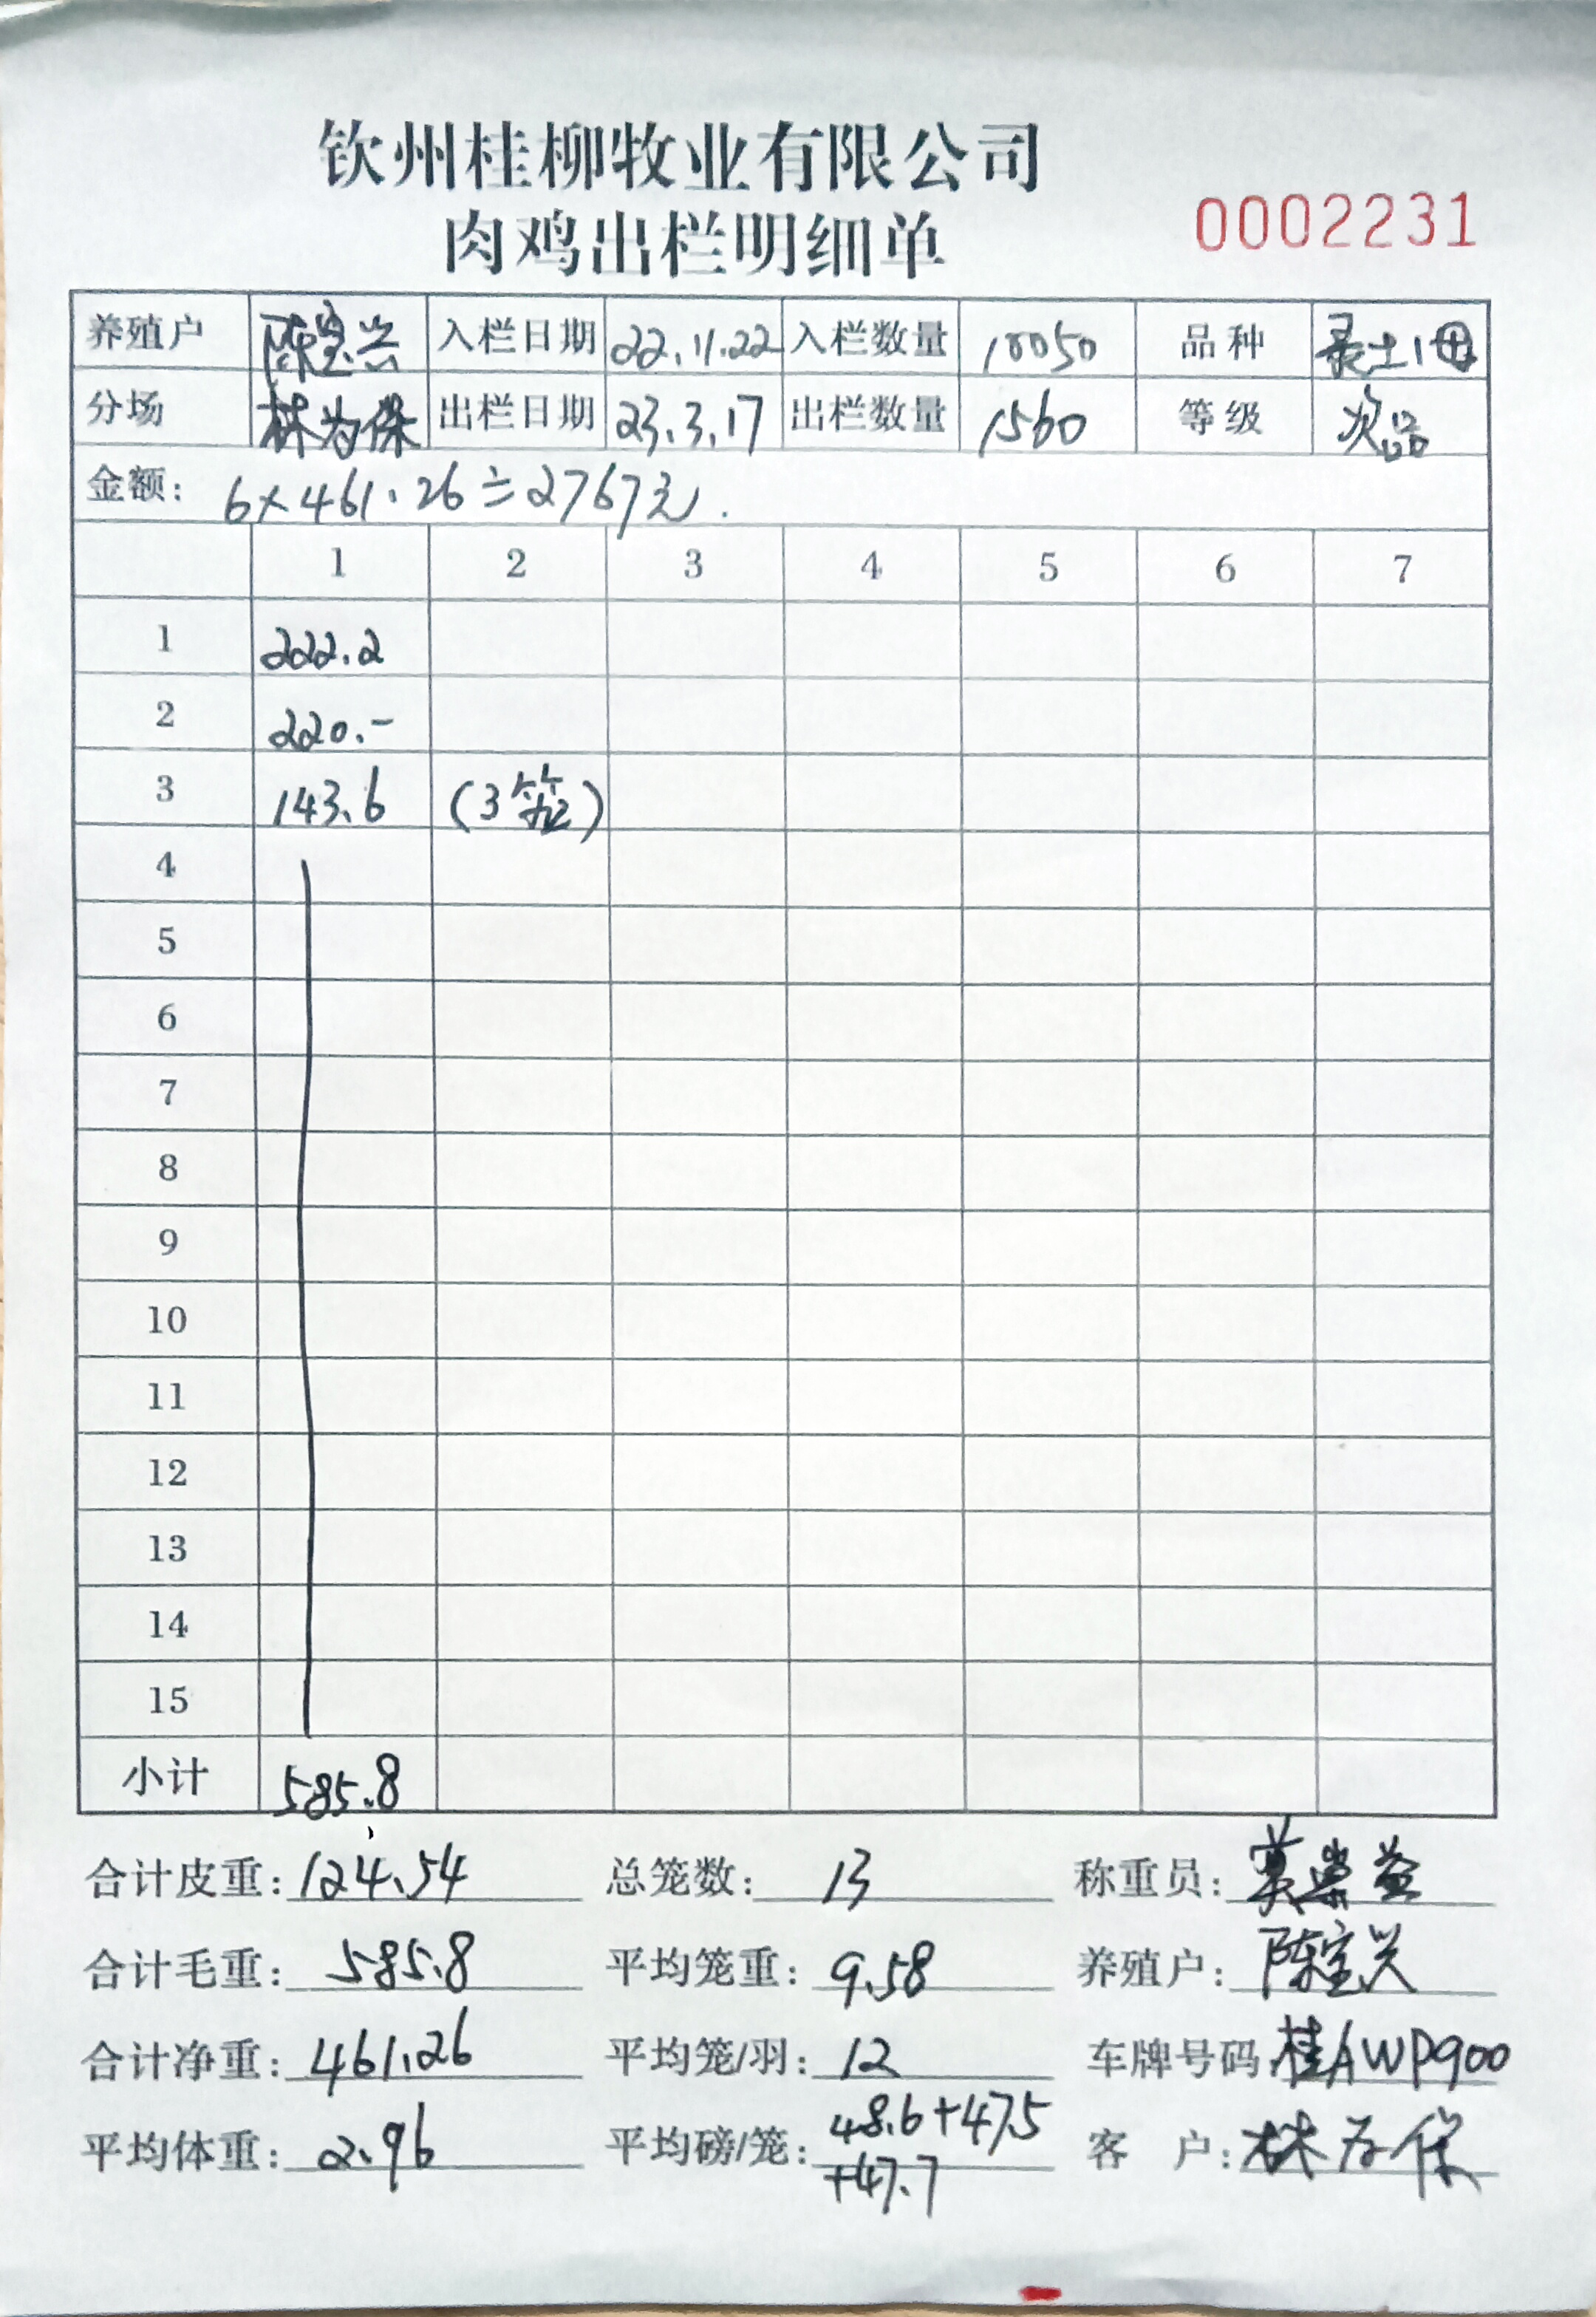 钦州桂柳牧业有限公司
肉鸡出栏明细单
0002231
养殖户 陈宝兴 入栏日期 22.11.22 入栏数量 10050 品种 土1母
分场 林为保 出栏日期 23.3.17 出栏数量 1560 等级 次品
金额: 6×461.26≐2767元.
1 2 3 4 5 6 7
1 222.2
2 220.-
3 143.6 (3笼)
4
5
6
7
8
9
10
11
12
13
14
15
小计 585.8
合计皮重: 124.54 总笼数: 13 称重员: 莫
合计毛重: 585.8 平均笼重: 9.58 养殖户: 陈宝兴
合计净重: 461.26 平均笼/羽: 12 车牌号码: 桂AWP900
平均体重: 2.96 平均磅/笼: 48.6+47.5 客 户: 林为保
+47.7